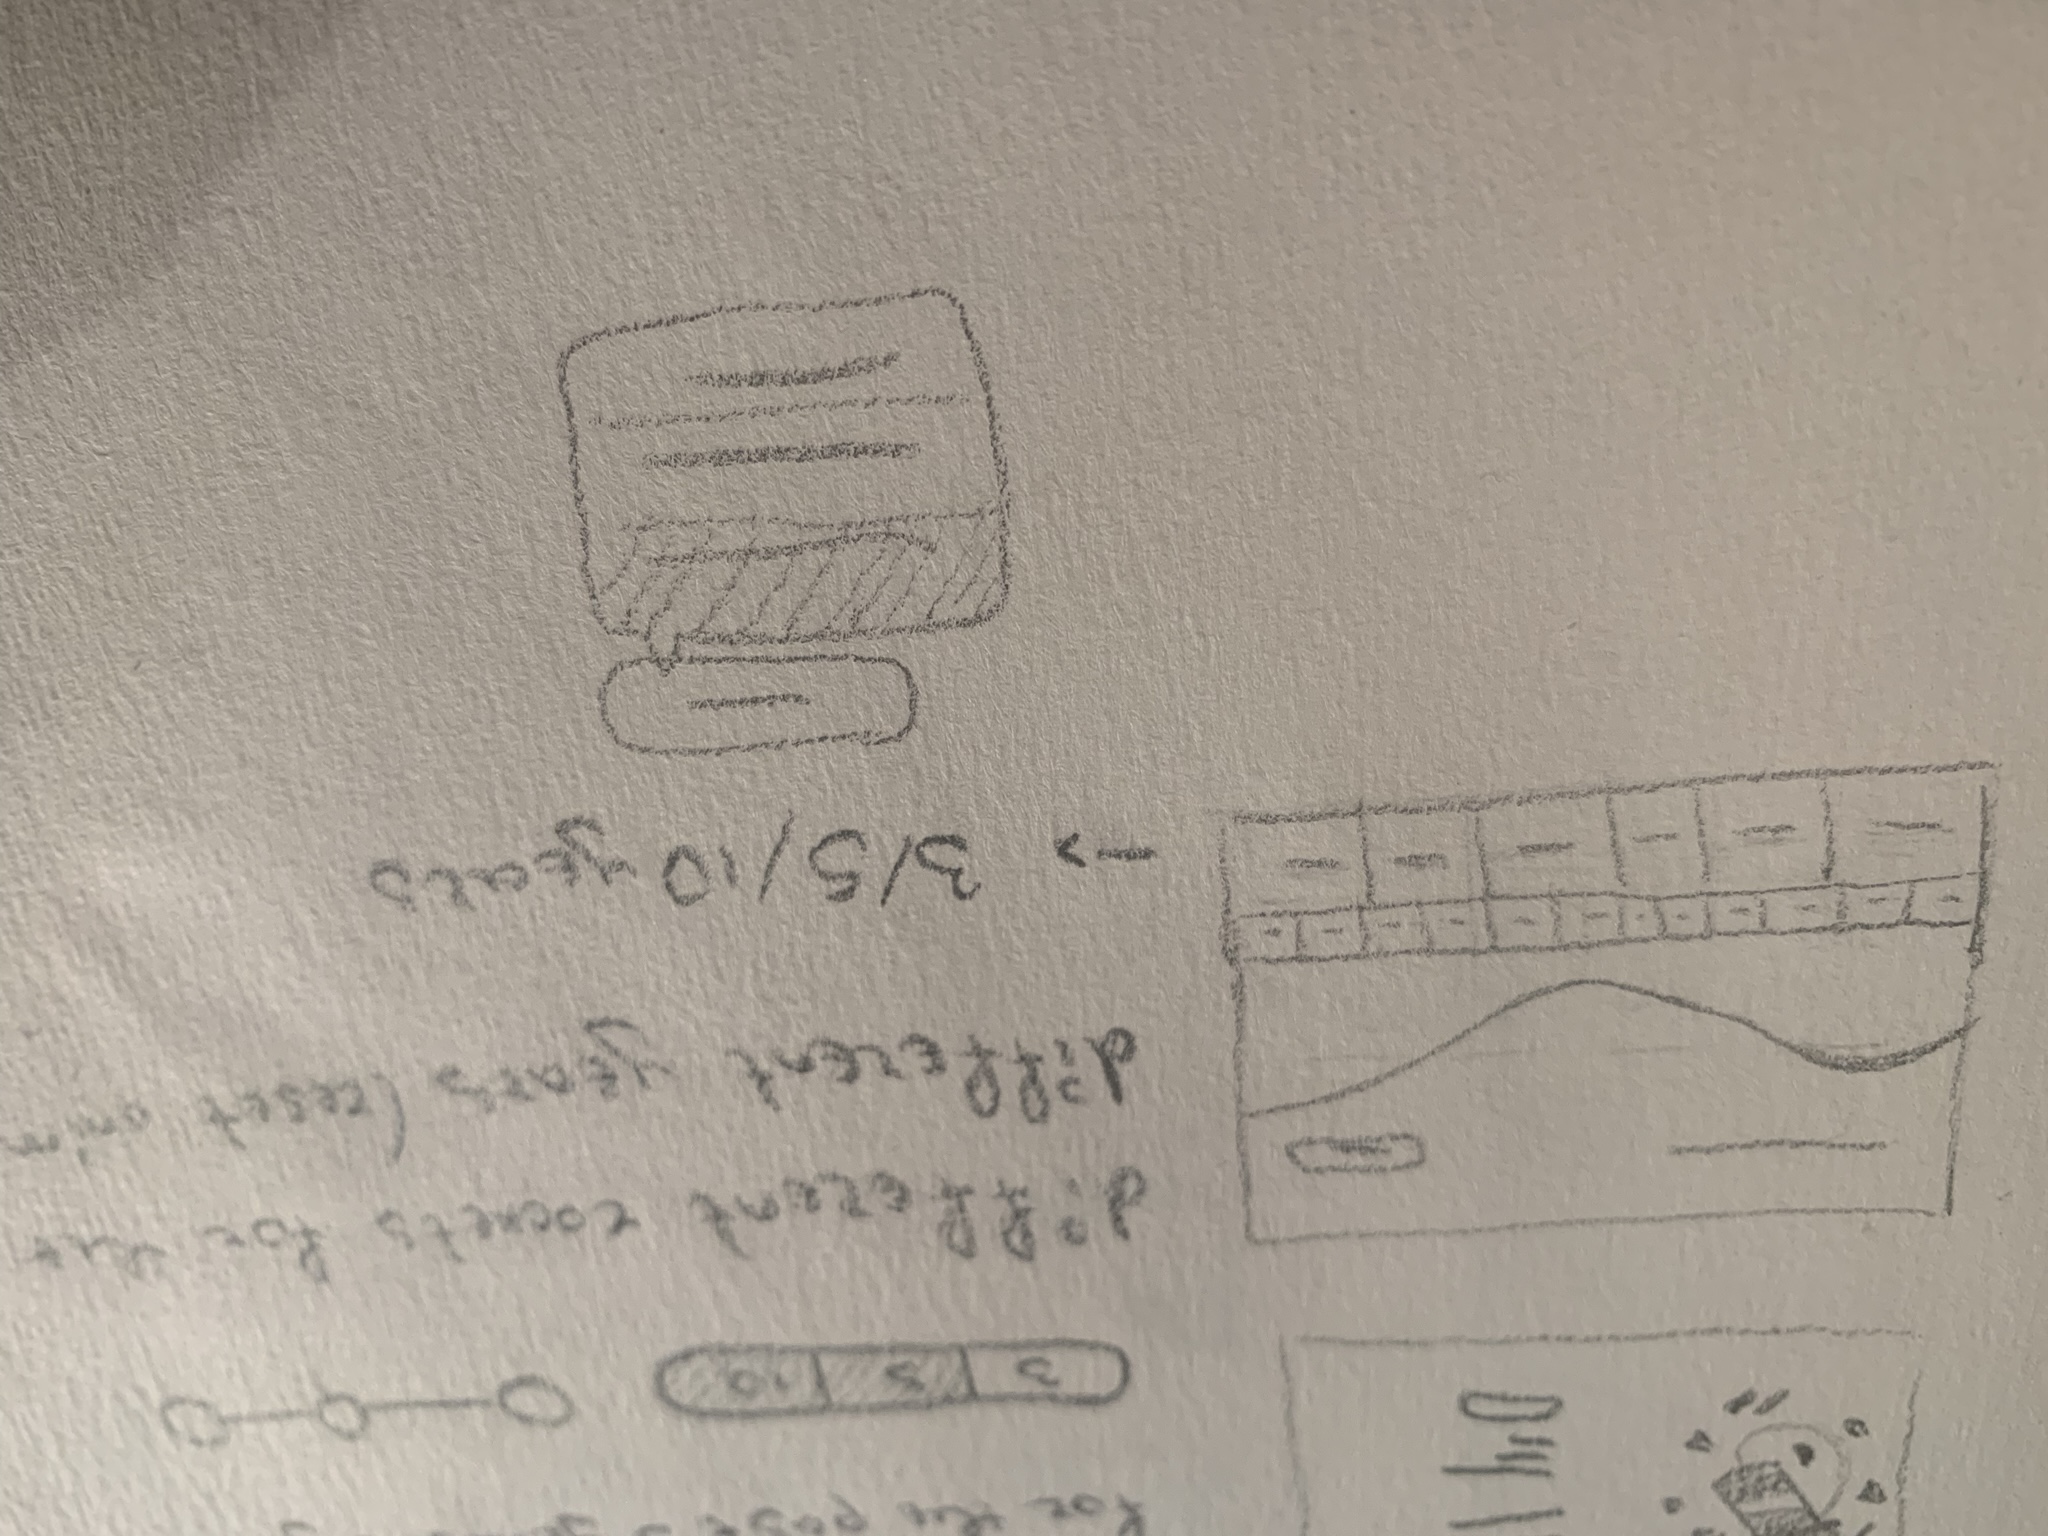 for the page's
3 5 10
different rockets for the
different years (reset anim
-> 3/5/10 years